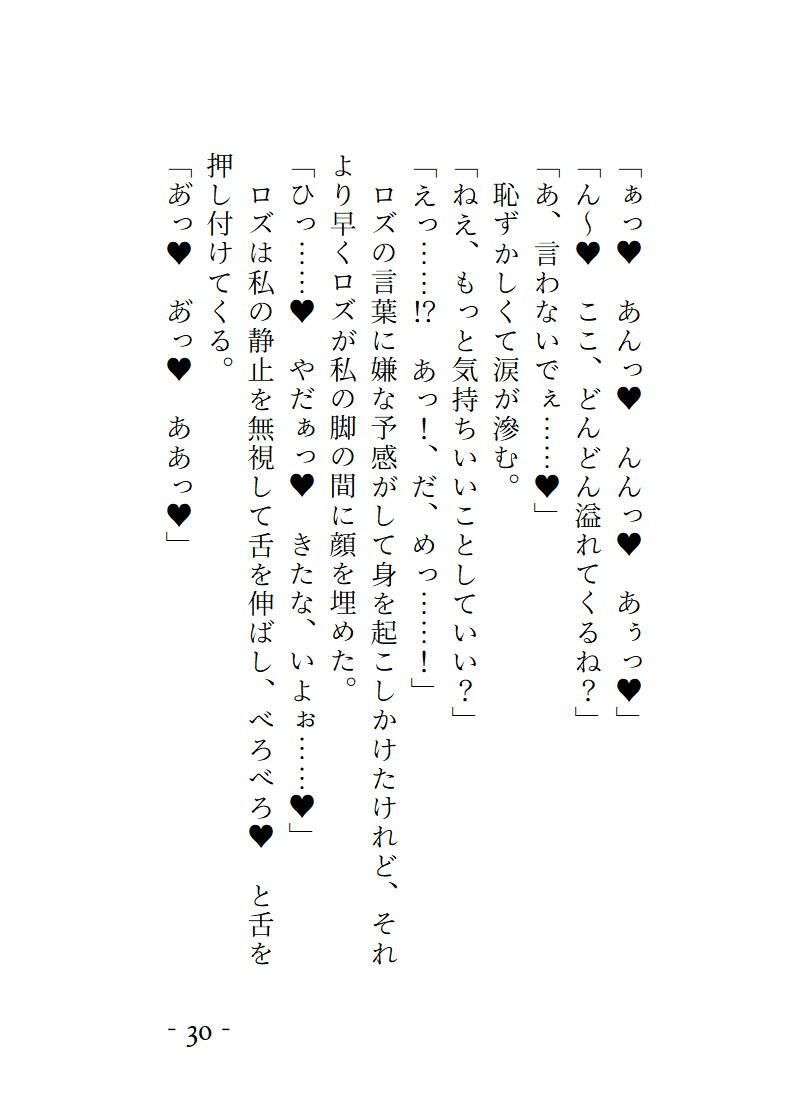 「ぁっ♥　あんっ♥　んんっ♥　あぅっ♥」
「ん〜♥　ここ、どんどん溢れてくるね？」
「あ、言わないでぇ……♥」
　恥ずかしくて涙が滲む。
「ねえ、もっと気持ちいいことしていい？」
「えっ……!?　あっ！、だ、めっ……！」
　ロズの言葉に嫌な予感がして身を起こしかけたけれど、それ
より早くロズが私の脚の間に顔を埋めた。
「ひっ……♥　やだぁっ♥　きたな、いよぉ……♥」
　ロズは私の静止を無視して舌を伸ばし、べろべろ♥　と舌を
押し付けてくる。
「あ゙っ♥　あ゙っ♥　ああっ♥」
- 30 -